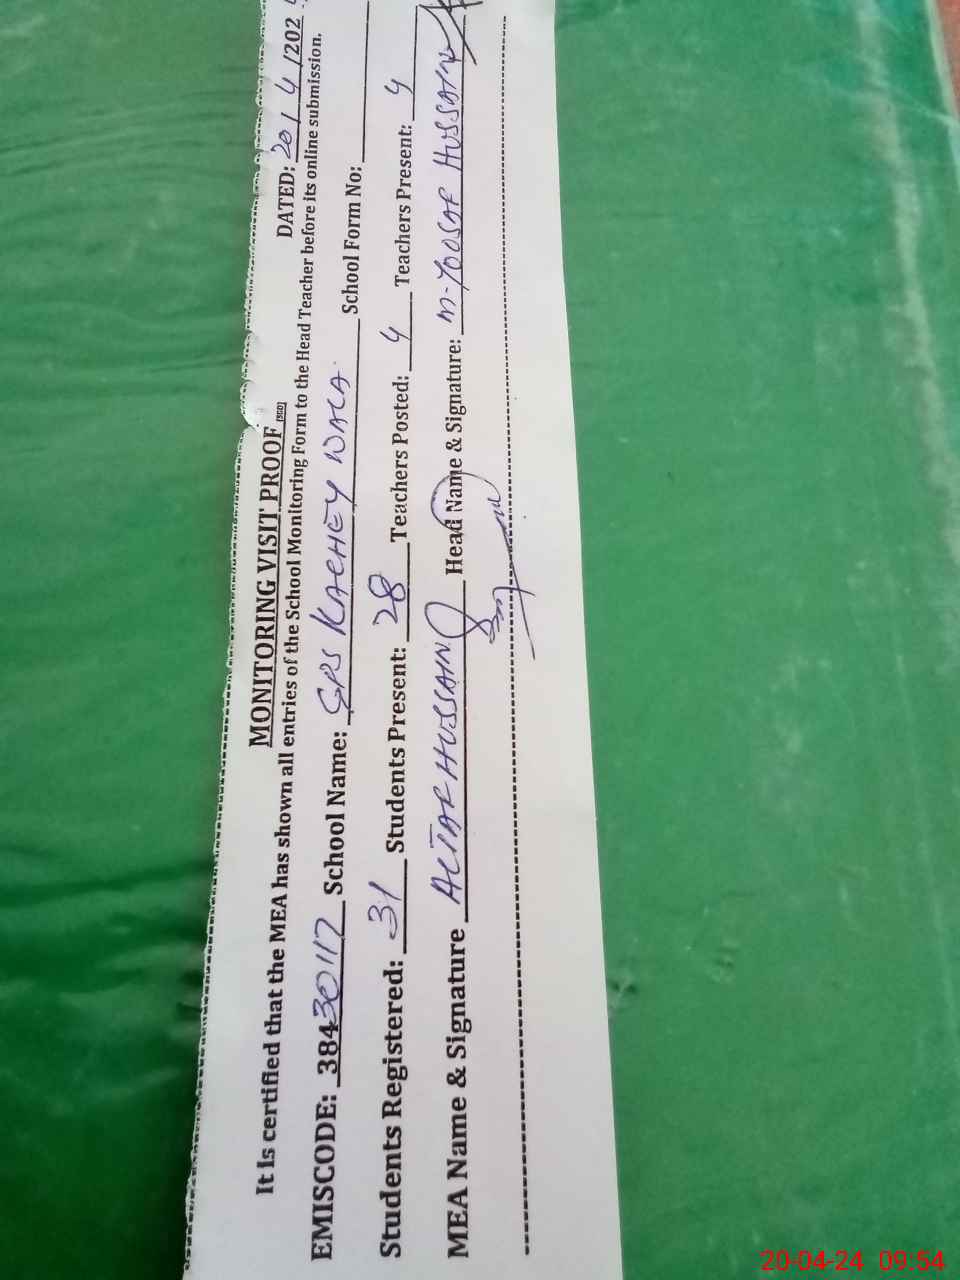 MONITORING VISIT PROOF (SGD) DATED: 20/4/202
It is certified that the MEA has shown all entries of the School Monitoring Form to the Head Teacher before its online submission.
EMISCODE: 38430117 School Name: GPS KACHEY WALA School Form No:
Students Registered: 31 Students Present: 28 Teachers Posted: 4 Teachers Present: 4
MEA Name & Signature ALTAF HUSSAIN Head Name & Signature: M-YOOSAF HUSSAIN
20-04-24 09:54